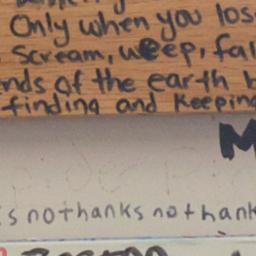 Only when you los
Scream, weep, fal
nds of the earth b
finding and keeping
M
s nothanks nothank